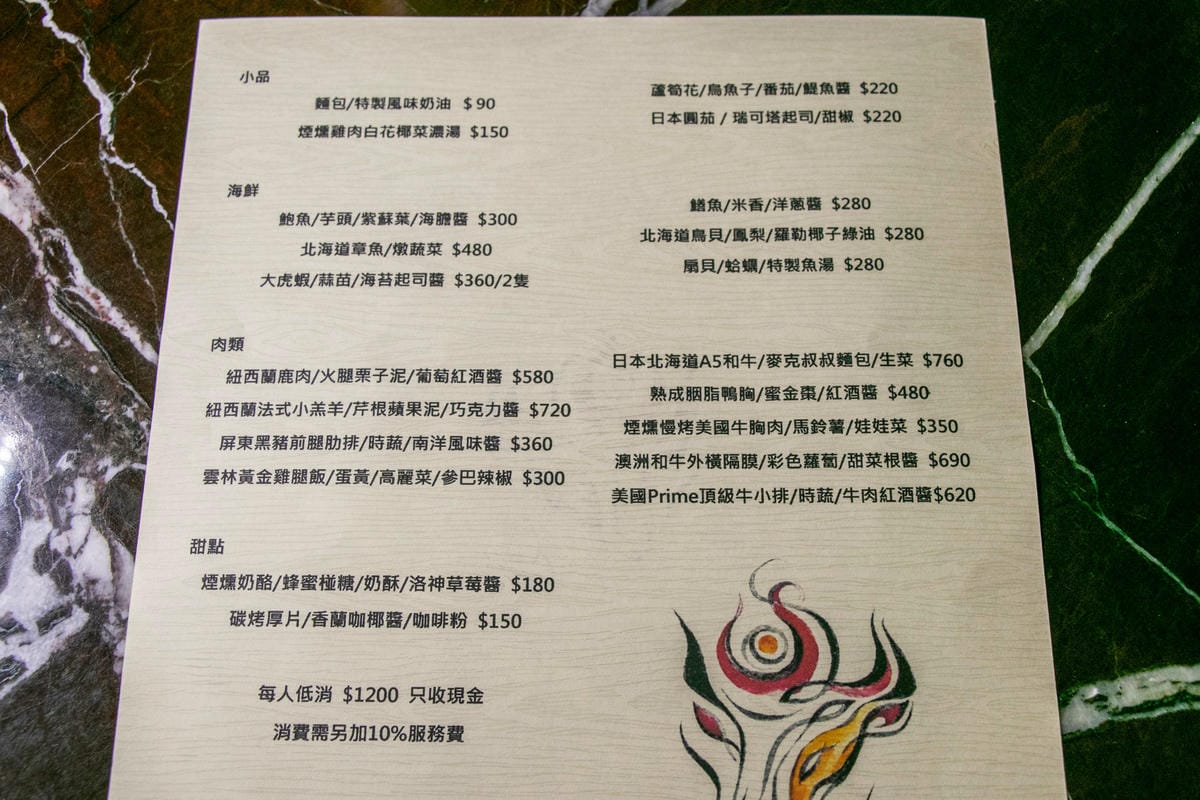 小品
麵包/特製風味奶油 $90
煙燻雞肉白花椰菜濃湯 $150
蘆筍花/烏魚子/番茄/鯷魚醬 $220
日本圓茄 / 瑞可塔起司/甜椒 $220
海鮮
鮑魚/芋頭/紫蘇葉/海膽醬 $300
北海道章魚/燉蔬菜 $480
大虎蝦/蒜苗/海苔起司醬 $360/2隻
鱔魚/米香/洋蔥醬 $280
北海道鳥貝/鳳梨/羅勒椰子綠油 $280
扇貝/蛤蠣/特製魚湯 $280
肉類
紐西蘭鹿肉/火腿栗子泥/葡萄紅酒醬 $580
紐西蘭法式小羔羊/芹根蘋果泥/巧克力醬 $720
屏東黑豬前腿肋排/時蔬/南洋風味醬 $360
雲林黃金雞腿飯/蛋黃/高麗菜/參巴辣椒 $300
日本北海道A5和牛/麥克叔叔麵包/生菜 $760
熟成胭脂鴨胸/蜜金棗/紅酒醬 $480
煙燻慢烤美國牛胸肉/馬鈴薯/娃娃菜 $350
澳洲和牛外橫隔膜/彩色蘿蔔/甜菜根醬 $690
美國Prime頂級牛小排/時蔬/牛肉紅酒醬$620
甜點
煙燻奶酪/蜂蜜椪糖/奶酥/洛神草莓醬 $180
碳烤厚片/香蘭咖椰醬/咖啡粉 $150
每人低消 $1200 只收現金
消費需另加10%服務費